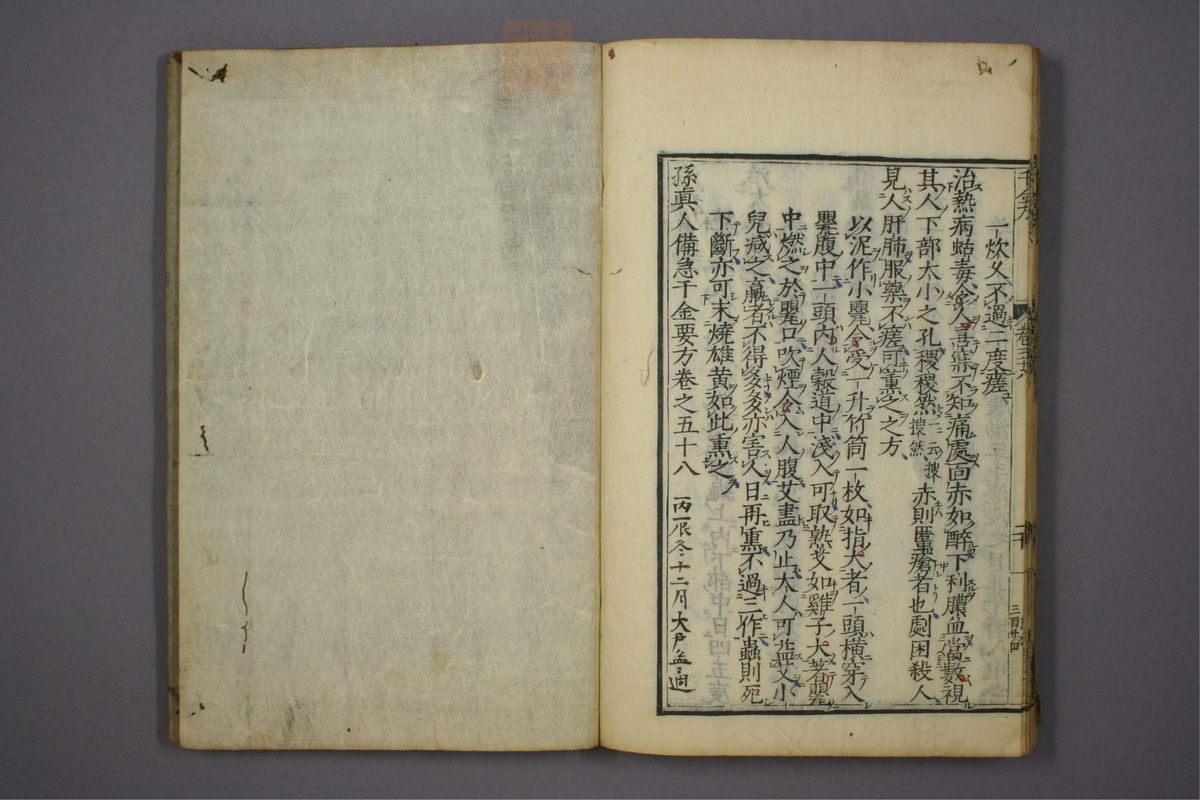 一炊久不過二度瘥
治熱病蛄毒令人喜寐不知痛處面赤如醉下利膿血當數視
其人下部大小之孔稷稷然 一云搜搜然 赤則䘌瘡者也劇因殺人
見人肝肺服藥不瘥可熏之之方
以泥作小罌令受一升竹筒一枚如指大者一頭橫穿入
罌腹中一頭內人穀道中淺入可取熟艾如雞子大著罌
中燃之於罌口吹煙令入人腹艾盡乃止大人可益艾小
兒減之羸者不得多多亦害人日再熏不過三作蟲則死
下斷亦可末燒雄黃如此熏之
孫真人備急千金要方卷之五十八
冬十二月
千金方
卷五十八
三百廿四